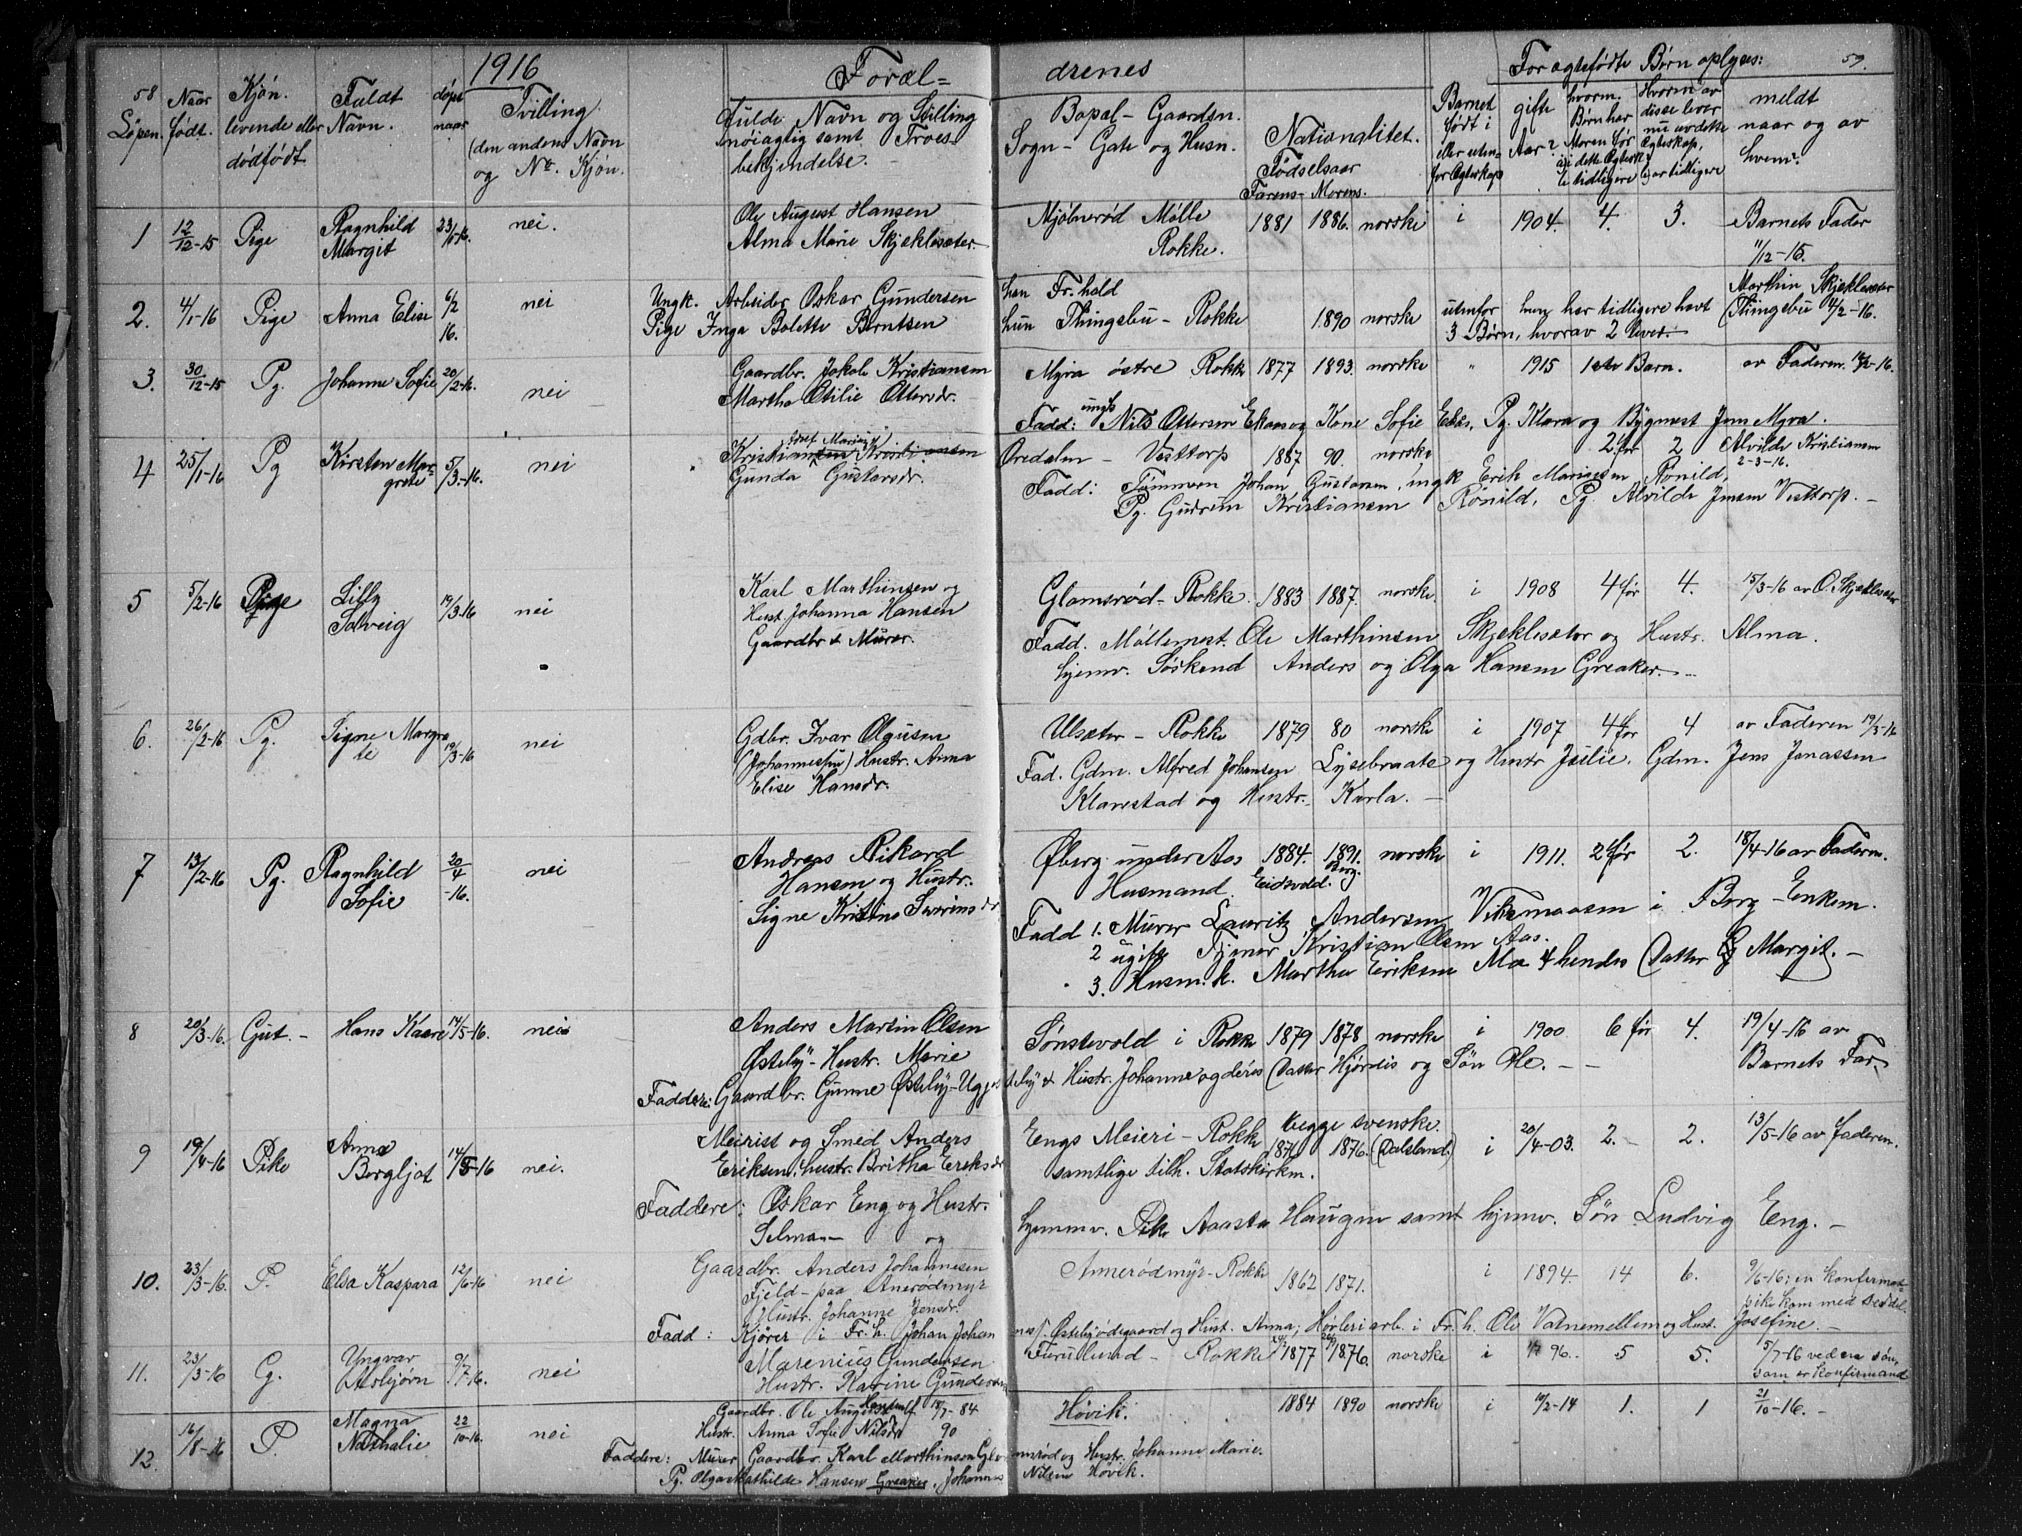 58
1916
Foræl=
drenes
For ægtefødte Børn oplyses:
59.
Løpen.
Naar født.
Kjøn. levende eller dødfødt
Fuldt Navn.
døpt naar
Tvilling (den andens Navn og No. Kjøn.
Fulde Navn og Stilling nøiagtig samt Troesbekjendelse.
Bopæl - Gaardsn. Sogn - Gate og Husn.
Nationalitet. Fødselsaar Farens - Morens.
Barnet født i eller utenfor Ægteskap
gifte Aar?
hvorm. Børn har Moren før a) i dette Ægtesk. b) tidligere
Hvorm av disse lever nu av dette Ægteskap, b) av tidligere
meldt naar og av hvem?
1 12/12-15 Pige Ragnhild Margit 23/1-16. nei.
Ole August Hansen
Alma Marie Skjeklesæter
Mjølnerød Mølle Rokke. 1881 1886. norske i 1904. 4. 3. Barnets Fader 11/12-15.
2. 4/1-16 Pige Anna Elise 6/2 16. nei
Ungk. Arbeider Oskar Gundersen
Pige Inga Bolette Berntsen
han Fr.hald
hun Thingsbu - Rokke 1890 norske utenfor hun har tidligere havt
3 Børn, hvorav 2 lever.
Marthin Skjeklesæter Thingsbu 4/2-16.
3. 30/12-15 Pg. Johanne Sofie 20/2-16. nei
Gaardbr. Jakob Kristiansen
Martha Otilie Ottersdr.
Myra østre Rokke 1877 1893. norske " 1915 1ste Barn. av Faderen
Fadd: ungk Nils Ottersen Ekaas og Kone Sofie Ekås, Pg. Klara og Bygmest Jens Myra.
4 25/1-16 Pg Kirsten Margrete 5/3-16. nei
Gunda Gustavsdr.
Øredalen - Vesttorp 1887 90. norske 2 før 2 Alvilde Kristiansen 2-3-16.
Fadd: Tømmerm Johan Gustavsen, ungk Erik Mariusen Rønild,
Pg. Gudrun Kristiansen Rønild, Pg. Alvilde Jensen Vesttorp. -
5 5/2-16 Pige Lilly Solveig 19/3-16 nei
Karl Marthinsen og
Hust. Johanna Hansen
Gaardbr & Murer.
Glamsrød - Rokke. 1883 1887. norske. i 1908 4 før 4. 15/3-16 av O. Skjeklesæter
Fadd. Møllemest. Ole Marthinsen Skjeklesæter og Hustr. Alma.
hjemv. Søskend Anders og Olga Hansen Greaker. -
6. 26/2-16 Pg. Signe Margrete 19/3-16 nei
Gdbr. Ivar Olausen
(Johannessen) Hustr. Anna
Elise Hansdr.
Ulsæter - Rokke 1879 80 norske i 1907 4 før 4 av Faderen 19/3-16
Fad. Gdm. Alfred Johansen Lysebraate og Hustr Julie. Gdm. Jens Jonassen
Klavestad og Hustr. Karla. -
7 13/2-16 Pg. Ragnhild Sofie 20/4-16. nei
Andreas Rikard
Hansen og Hustr.
Signe Kristine
Øberg under Aas 1884. 1891. norske i 1911. 2 før 2. 18/4-16 av Faderen.
Husmand. Eidsvold. Berg.
Fadd 1. Murer Lauritz Andersen Vikemaasen i Berg - Enkem.
2 ugift Tjener Kristian Olsen Aas.
3. Husm. k. Martha Eriksen Moe & hendes Datter Margit. -
8 20/3-16. Gut. - Hans Kaare 14/5-16. nei
Anders Martin Olsen
Østeby - Hustr. Marie
Sønstevold i Rokke 1879 1878 norske i 1900 6 før 4. 19/4-16 av Barnets Far
Faddere: Gaardbr. Gunne Østeby - Hustr. Johanne og deres Datter Hjørdis og Søn Ole. -
9 19/4-16 Pike Anna Bergljot 14/5-16 nei.
Meirist og Smed Anders
Eriksen, hustr. Britha Eriksdr
Engs Meieri - Rokke begge svenske. 1876. (Dalsland) i 20/4-03. 2. 2. 13/5-16 av faderen.
samtlige tilh. Statskirken.
Faddere: Oskar Eng og Hustr.
Selma - og
hjemmv. Pike Aasta Haugen samt hjemv. Søn Ludvig Eng. -
10. 23/3-16. P. Elsa Kaspara 12/6-16 nei
Gaardbr. Anders Johannesen
Fjeld - paa Anerødmyr
Hustr. Johanne Jensdr.
Annerødmyr - Rokke 1862 1871. i 1894 14 6. 9/6-16; en konfirmat-pike kom med seddel
Fadd: Kjører i Fr.h. Johan Johannes. Østebyødegaard og Hust. Anna; arb. i Fr. h. Ole Vatnemellem og Hust. Josefine. -
11. 23/3-16 G. Yngvar Asbjørn 9/7-16. nei
Marenius Gundersen
Hustr. Karine Gundersen
Furulund - Rokke 1877 1876. norske i 96. 5 5. 5/7-16 ved en søn, som er konfirmand
12. 16/8-16 P. Magna Nathalie 22/10-16. nei
Gaardbr. Ole August 84
Hustr. Anna Sofie Nilsdr 90
Høvik. 1884 1890 norske i 14/2-14 1. 1 21/10-16. -
Faddere: Murer Gaardbr. Karl Marthinsen Glamsrød og Hustr. Johanne Marie.
Pg. Olga Mathilde Hansen Greaker, Johannes Nilsen Høvik.